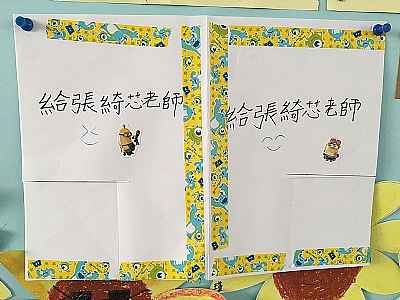 給張綺芯老師
給張綺芯老師